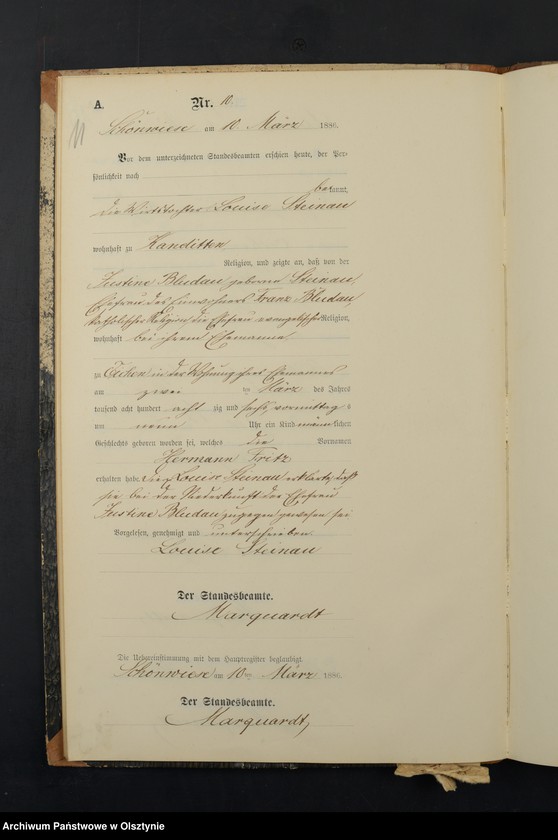 A.
Nr. 10.
11
Schönwiese am 10 März 1886.
Vor dem unterzeichneten Standesbeamten erschien heute, der Per-
sönlichkeit nach
bekannt,
die Wirthstochter Louise Steinau
wohnhaft zu Kanditten
Religion, und zeigte an, daß von der
Justine Bludau geborene Steinau,
Ehefrau des Einwohners Franz Bludau
katholischer Religion, die Ehefrau evangelischer Religion,
wohnhaft bei ihrem Ehemanne
zu in der Wohnung ihres Ehemannes
am zwei ten März des Jahres
tausend acht hundert acht zig und sechs vormittags
um neun Uhr ein Kind männlichen
Geschlechts geboren worden sei, welches die Vornamen
Hermann Fritz
erhalten habe. Louise Steinau erklärte, daß
sie bei der Niederkunft der Ehefrau
Justine Bludau zugegen gewesen sei
Vorgelesen, genehmigt und unterschrieben
Louise Steinau
Der Standesbeamte.
Marquardt
Die Uebereinstimmung mit dem Hauptregister beglaubigt
Schönwiese am 10 ten März 1886.
Der Standesbeamte.
Marquardt
Archiwum Państwowe w Olsztynie